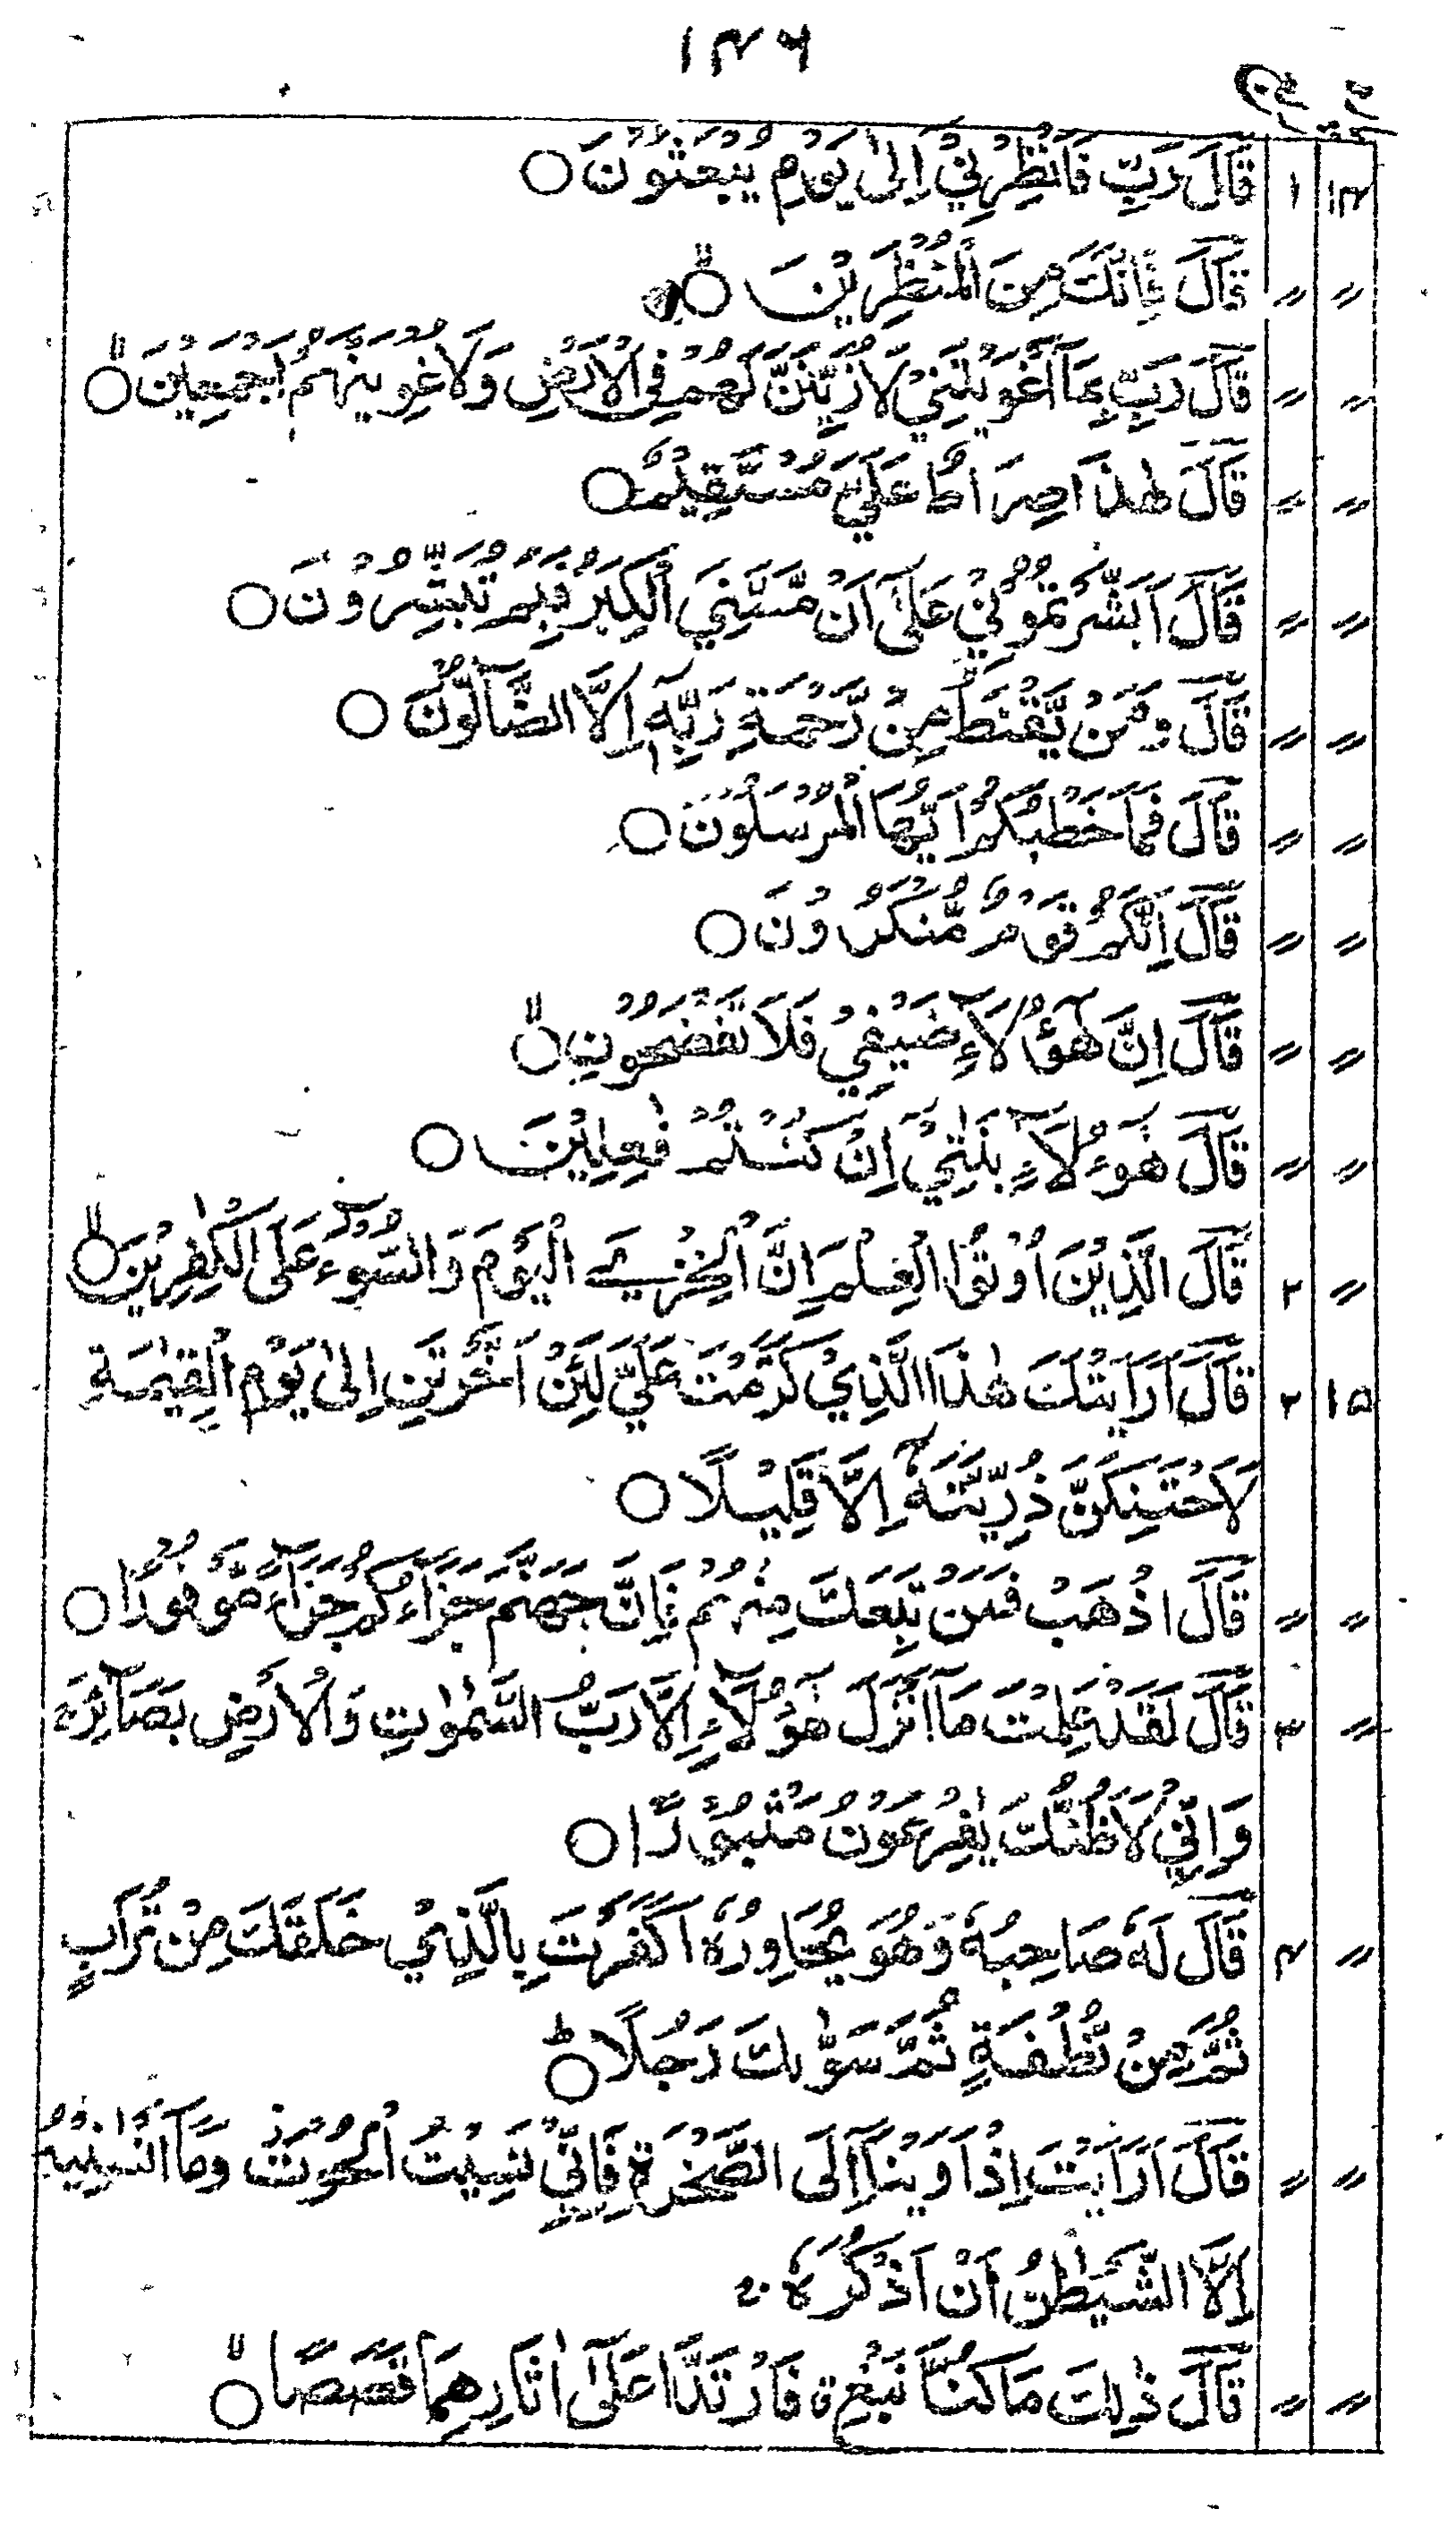 ۱۴۶
قَالَ رَبِّ فَاَنْظِرْنِيْٓ اِلٰى يَوْمِ يُبْعَثُوْنَ ○ ۱ ۱۴
قَالَ فَاِنَّكَ مِنَ الْمُنْظَرِيْنَ ○ۙ 〃 〃
قَالَ رَبِّ بِمَآ اَغْوَيْتَنِيْ لَاُزَيِّنَنَّ لَهُمْ فِي الْاَرْضِ وَلَاُغْوِيَنَّهُمْ اَجْمَعِيْنَ ○ۙ 〃 〃
قَالَ هٰذَا صِرَاطٌ عَلَيَّ مُسْتَقِيْمٌ ○ 〃 〃
قَالَ اَبَشَّرْتُمُوْنِيْ عَلٰٓى اَنْ مَّسَّنِيَ الْكِبَرُ فَبِمَ تُبَشِّرُوْنَ ○ 〃 〃
قَالَ وَمَنْ يَّقْنَطُ مِنْ رَّحْمَةِ رَبِّهٖٓ اِلَّا الضَّآلُّوْنَ ○ 〃 〃
قَالَ فَمَا خَطْبُكُمْ اَيُّهَا الْمُرْسَلُوْنَ ○ 〃 〃
قَالَ اِنَّكُمْ قَوْمٌ مُّنْكَرُوْنَ ○ 〃 〃
قَالَ اِنَّ هٰٓؤُلَآءِ ضَيْفِيْ فَلَا تَفْضَحُوْنِ ○ۙ 〃 〃
قَالَ هٰٓؤُلَآءِ بَنٰتِيْٓ اِنْ كُنْتُمْ فٰعِلِيْنَ ○ 〃 〃
قَالَ الَّذِيْنَ اُوْتُوا الْعِلْمَ اِنَّ الْخِزْيَ الْيَوْمَ وَالسُّوْٓءَ عَلَى الْكٰفِرِيْنَ ○ۙ ۲ 〃
قَالَ اَرَاَيْتَكَ هٰذَا الَّذِيْ كَرَّمْتَ عَلَيَّ لَئِنْ اَخَّرْتَنِ اِلٰى يَوْمِ الْقِيٰمَةِ ۲ ۱۵
لَاَحْتَنِكَنَّ ذُرِّيَّتَهٗٓ اِلَّا قَلِيْلًا ○
قَالَ اذْهَبْ فَمَنْ تَبِعَكَ مِنْهُمْ فَاِنَّ جَهَنَّمَ جَزَآؤُكُمْ جَزَآءً مَّوْفُوْرًا ○ 〃 〃
قَالَ لَقَدْ عَلِمْتَ مَآ اَنْزَلَ هٰٓؤُلَآءِ اِلَّا رَبُّ السَّمٰوٰتِ وَالْاَرْضِ بَصَآئِرَ ۚ ۳ 〃
وَاِنِّيْ لَاَظُنُّكَ يٰفِرْعَوْنُ مَثْبُوْرًا ○
قَالَ لَهٗ صَاحِبُهٗ وَهُوَ يُحَاوِرُهٗٓ اَكَفَرْتَ بِالَّذِيْ خَلَقَكَ مِنْ تُرَابٍ ۴ 〃
ثُمَّ مِنْ نُّطْفَةٍ ثُمَّ سَوّٰىكَ رَجُلًا ○ؕ
قَالَ اَرَاَيْتَ اِذْ اَوَيْنَآ اِلَى الصَّخْرَةِ فَاِنِّيْ نَسِيْتُ الْحُوْتَ وَمَآ اَنْسٰنِيْهُ 〃 〃
اِلَّا الشَّيْطٰنُ اَنْ اَذْكُرَهٗ ۚ
قَالَ ذٰلِكَ مَا كُنَّا نَبْغِ ۖ فَارْتَدَّا عَلٰٓى اٰثَارِهِمَا قَصَصًا ○ۙ 〃 〃